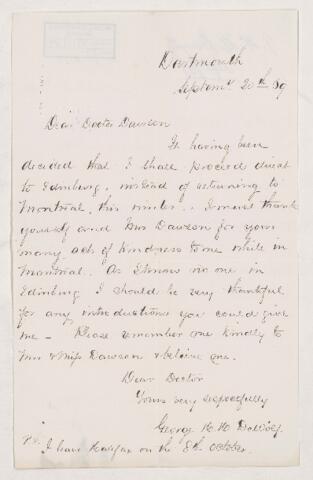 Dartmouth
Septemr 20th 89
Dear Doctor Dawson
It having been
decided that I shall proceed direct
to Edinburg, instead of returning to
Montreal, this winter, I must thank
yourself and Mrs Dawson for your
many acts of kindness to me while in
Montreal. As I know no one in
Edinburg I should be very thankful
for any introductions you could give
me - Please remember me kindly to
Mrs & Miss Dawson & believe me.
Dear Doctor
Yours very respectfully
George H. H. DeWolf
P.S. I leave Halifax on the 8th October.